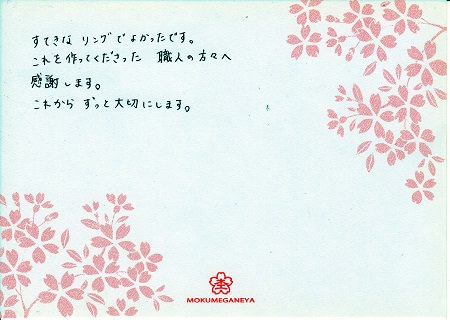 すてきな リングでよかったです。
これを作ってくださった 職人の方々へ
感謝します。
これから ずっと大切にします。
MOKUMEGANEYA